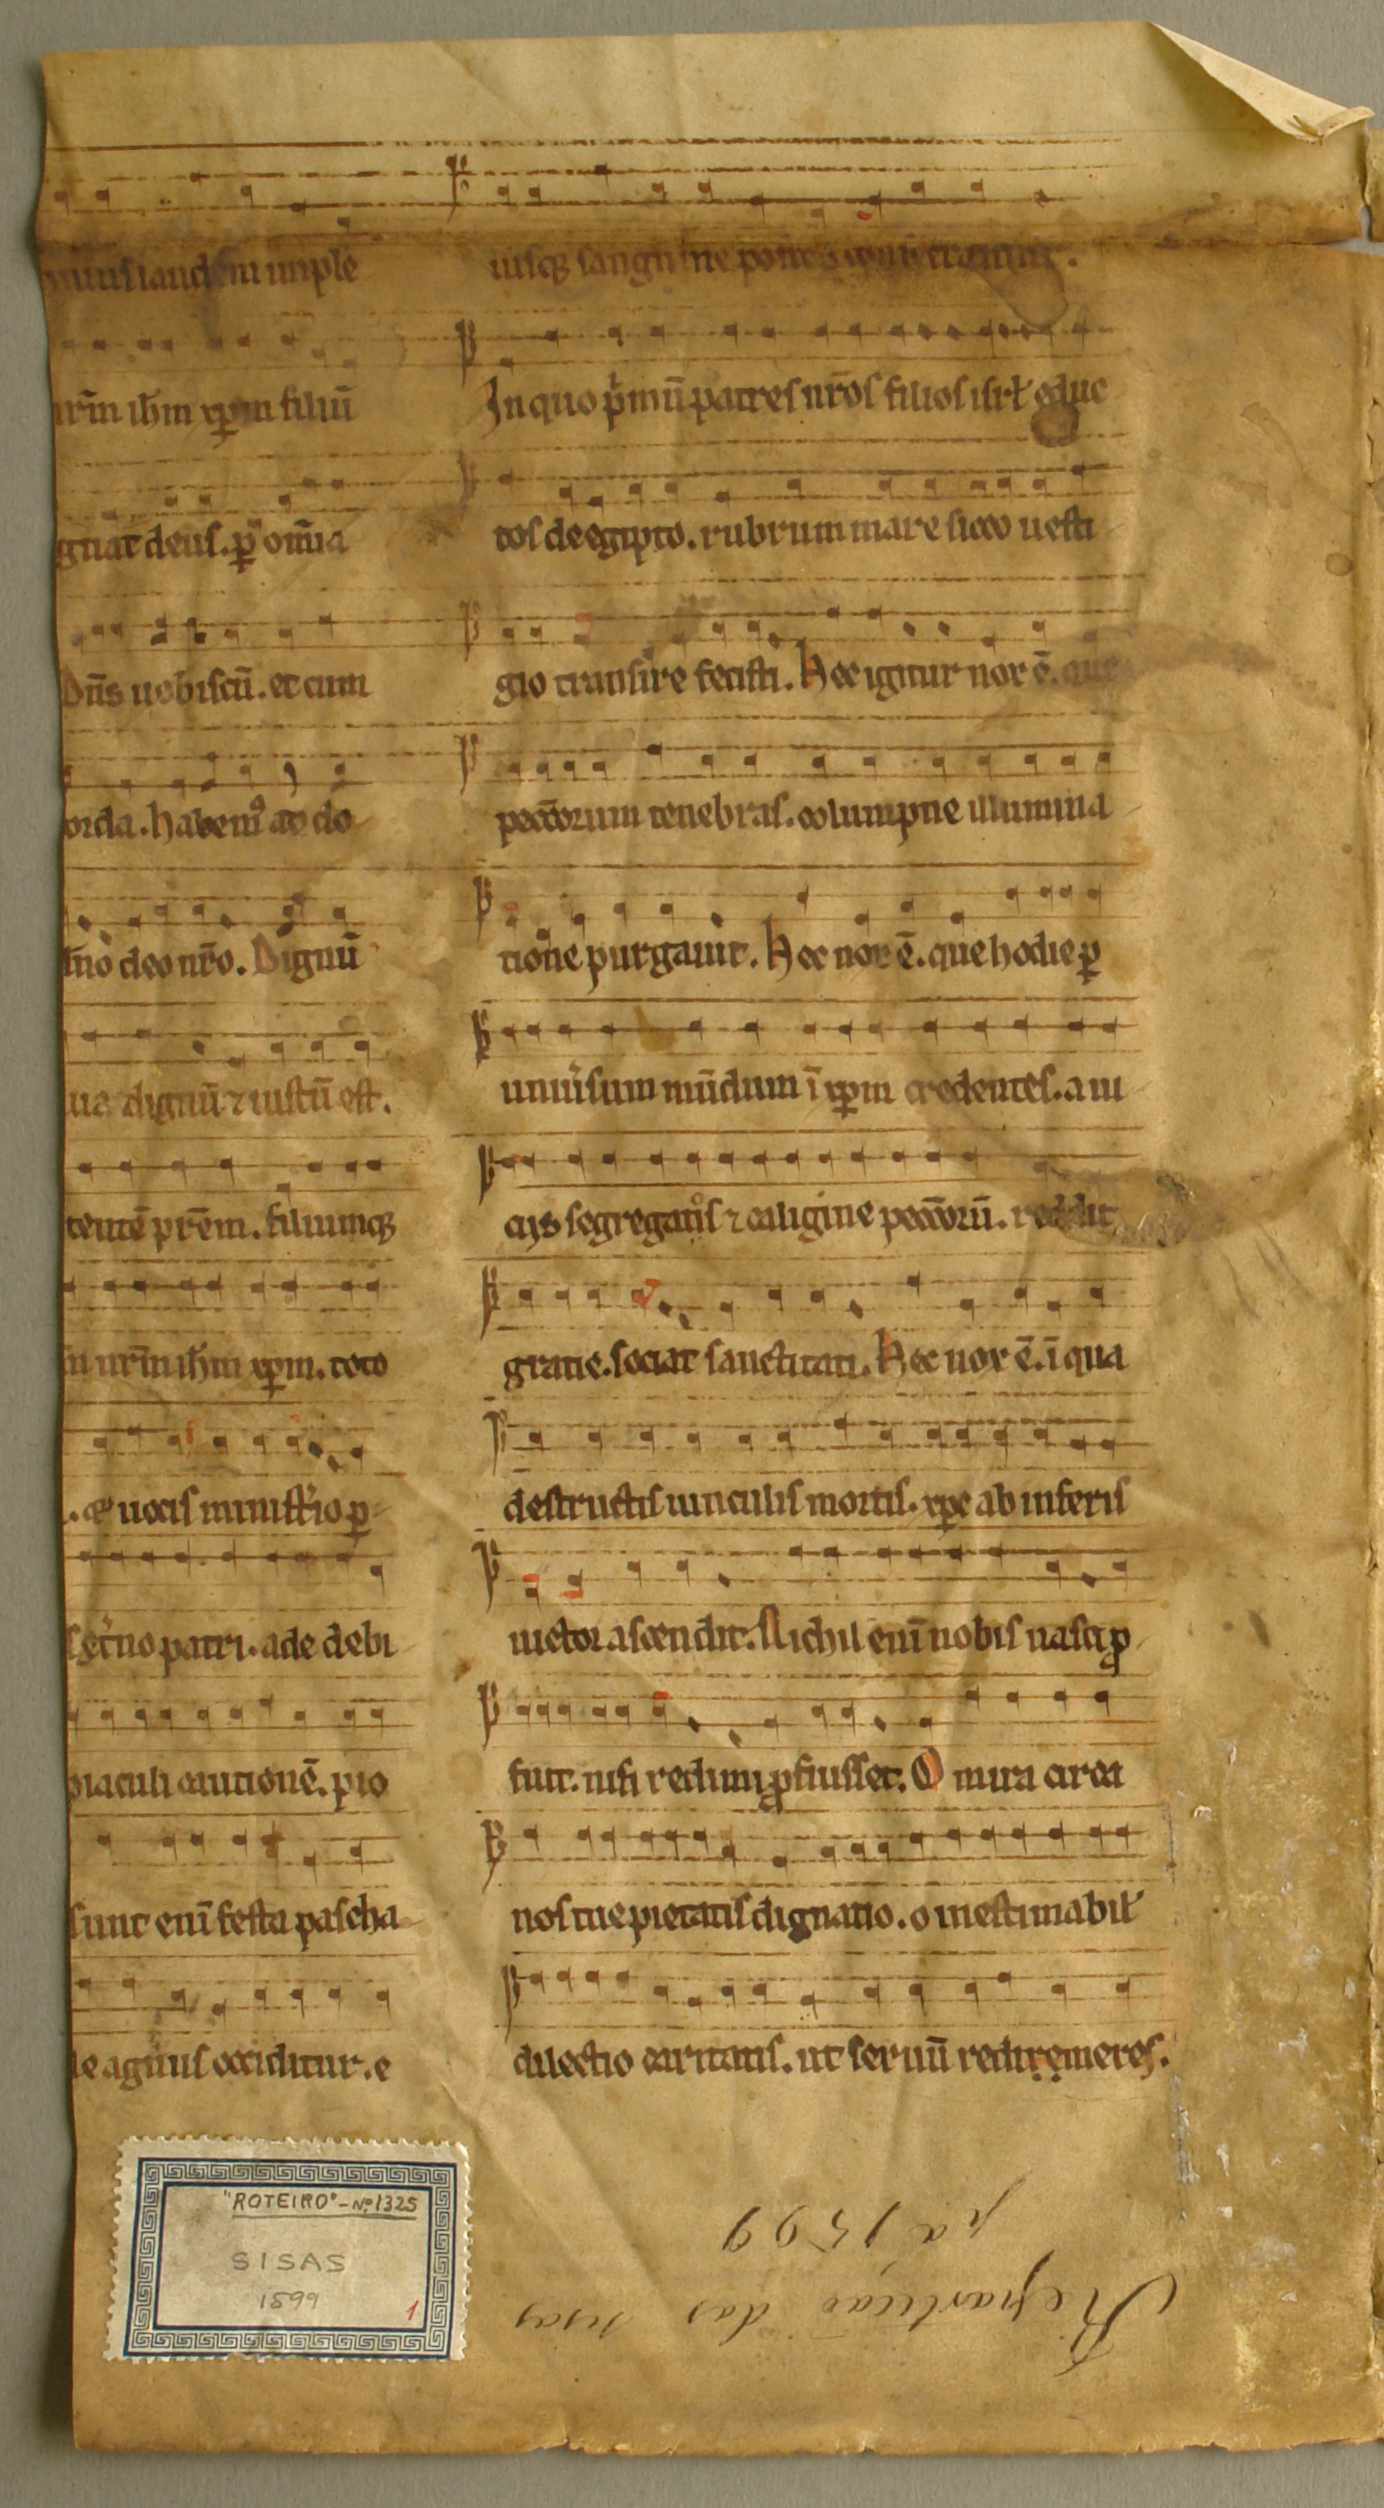 minis laudem imple
nr̄m ih̄m xp̄m filiū
gnat deus. ꝑ om̄ia
Dn̄s uobiscū. et cum
orda. habemꝰ ad do
mīno deo nr̄o. Dignū
ua dignū ⁊ iustū est.
tentē pr̄em. filiumqꝫ
m nr̄m ih̄m xp̄m. toto
uocis minist̄io ꝑ
et̄no patri. ade debi
piaculi cautionē. pio
sunt enī festa pascha
le agnus occiditur. e
iusqꝫ sanguine postes consecrantur.
In quo pⁱmū patres nr̄os filios isrł educ
tos de egipto. rubrum mare sicco uesti
gio transire fecisti. Hec igitur nox ē. que
pecc̄orum tenebras. columpne illumina
tione purgauit. Hec nox ē. que hodie ꝑ
uniu̓sum mūdum ī xp̄m credentes. a ui
cijs segregatos ⁊ caligine pecc̄orū. reddit
gratie. sociat sanctitati. Hec nox ē. ī qua
destructis uinculis mortis. xp̄c ab inferis
uictor ascendit. Nichil enī nobis nasci ꝓ
fuit. nisi redimi ꝓfuisset. O mira circa
nos tue pietatis dignatio. o inestimabił
dilectio caritatis. ut seruū redimeres.
"ROTEIRO" - Nº 1325
SISAS
1599
1
Repartiçaõ das sisas
pa 1599